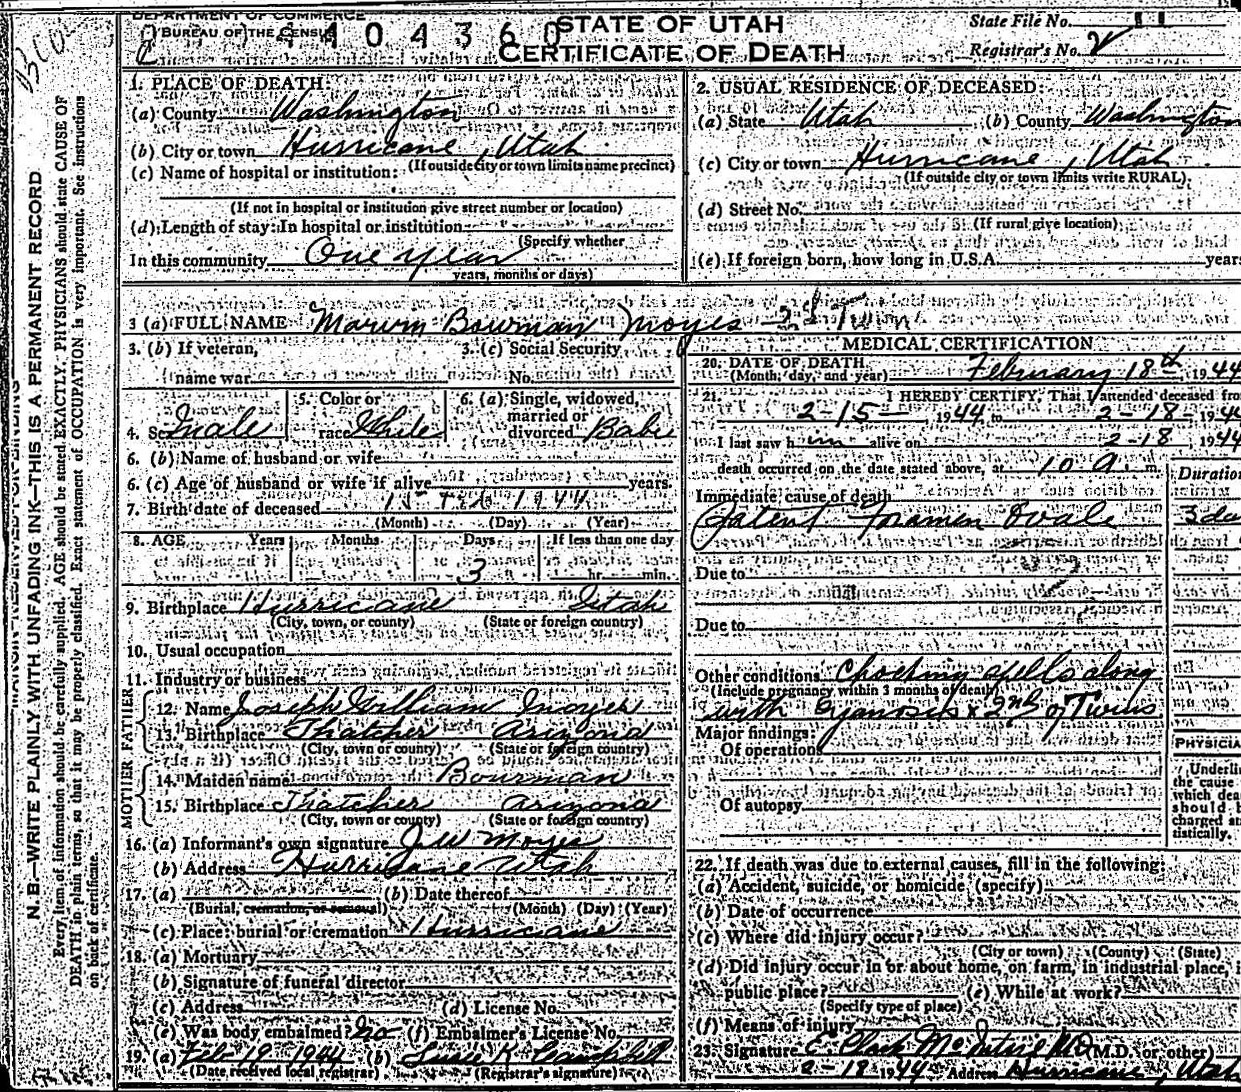 DEPARTMENT OF COMMERCE
BUREAU OF THE CENSUS
4404360
STATE OF UTAH
CERTIFICATE OF DEATH
State File No. 11
Registrar's No. 2
N. B.—WRITE PLAINLY WITH UNFADING INK—THIS IS A PERMANENT RECORD
Every item of information should be carefully supplied. AGE should be stated EXACTLY. PHYSICIANS should state CAUSE OF
DEATH in plain terms, so that it may be properly classified. Exact statement of OCCUPATION is very important. See instructions
on back of certificate.
1. PLACE OF DEATH:
(a) County Washington
(b) City or town Hurricane, Utah
(If outside city or town limits name precinct)
(c) Name of hospital or institution:
(If not in hospital or institution give street number or location)
(d) Length of stay: In hospital or institution
(Specify whether
In this community One year
years, months or days)
2. USUAL RESIDENCE OF DECEASED:
(a) State Utah (b) County Washington
(c) City or town Hurricane, Utah
(If outside city or town limits write RURAL)
(d) Street No.
(If rural give location)
(e) If foreign born, how long in U.S.A. years
3 (a) FULL NAME Marvin Bowman Moyes 2d Twin
3. (b) If veteran, 3. (c) Social Security
name war No.
4. Sex Male 5. Color or race White 6. (a) Single, widowed, married or divorced Babe
6. (b) Name of husband or wife
6. (c) Age of husband or wife if alive years.
7. Birth date of deceased 15 Feb 1944
(Month) (Day) (Year)
8. AGE Years Months Days If less than one day
3 hr. min.
9. Birthplace Hurricane Utah
(City, town, or county) (State or foreign country)
10. Usual occupation
11. Industry or business
FATHER
12. Name Joseph William Moyes
13. Birthplace Thatcher Arizona
(City, town or county) (State or foreign country)
MOTHER
14. Maiden name Bowman
15. Birthplace Thatcher Arizona
(City, town or county) (State or foreign country)
16. (a) Informant's own signature J W Moyes
(b) Address Hurricane Utah
17. (a) (b) Date thereof
(Burial, cremation, or removal) (Month) (Day) (Year)
(c) Place: burial or cremation Hurricane
18. (a) Mortuary
(b) Signature of funeral director
(c) Address (d) License No.
(e) Was body embalmed? No (f) Embalmer's License No.
19. (a) Feb 19 1944 (b) Susie K.
(Date received local registrar) (Registrar's signature)
MEDICAL CERTIFICATION
20. DATE OF DEATH February 18th, 1944
(Month, day, and year)
21. I HEREBY CERTIFY, That I attended deceased from
2-15- 1944 to 2-18- 1944
I last saw him alive on 2-18 1944
death occurred on the date stated above, at 10 A. m.
Duration
Immediate cause of death
Patent Foramen Ovale 3 da
Due to
Due to
Other conditions Choking spells along
(Include pregnancy within 3 months of death)
with Cyanosis x 2nd of Twins
Major findings:
Of operations
PHYSICIA
Of autopsy
Underli
the cause
which dea
should b
charged st
tistically.
22. If death was due to external causes, fill in the following:
(a) Accident, suicide, or homicide (specify)
(b) Date of occurrence
(c) Where did injury occur?
(City or town) (County) (State)
(d) Did injury occur in or about home, on farm, in industrial place, i
public place? (e) While at work?
(Specify type of place)
(f) Means of injury
23. Signature E. Clark McIntire MD (M.D. or other)
2-18 1944 Address Hurricane, Utah